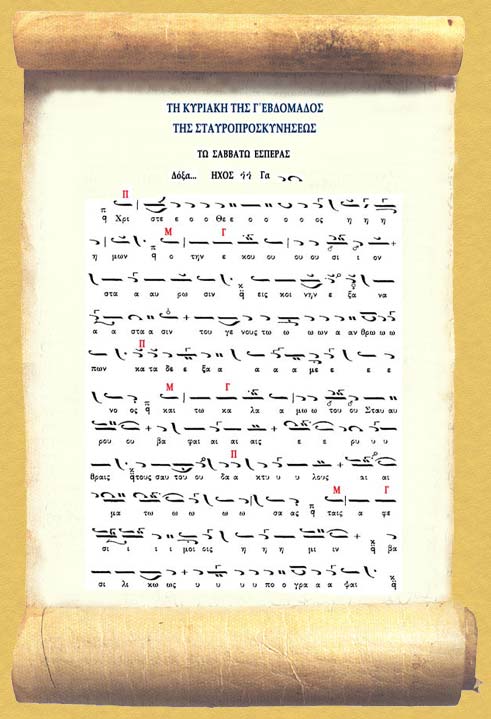 ΤΗ ΚΥΡΙΑΚΗ ΤΗΣ Γ΄ ΕΒΔΟΜΑΔΟΣ
ΤΗΣ ΣΤΑΥΡΟΠΡΟΣΚΥΝΗΣΕΩΣ
ΤΩ ΣΑΒΒΑΤΩ ΕΣΠΕΡΑΣ
Δόξα... ΗΧΟΣ Γα
Π
Χρι στε ε ο ο Θε ε ο ο ο ο ος η η η
Μ Γ
η μων ο την ε κου ου ου ου σι ι ον
στα α αυ ρω σιν εις κοι νην ε ξα να
α α στα α σιν του γε νους τω ω ω ων α αν θρω ω ω
Π
πων κα τα δε ε ξα α α α α με ε ε ε
Μ Γ
νο ος και τω κα λα α μω ω του ου Σταυ αυ
ρου ου βα φαι αι αι αις ε ε ρυ υ υ
Π
θραις τους σαυ του ου δα α κτυ υ υ λους αι αι
Μ Γ
μα τω ω ω ω ω σα ας ταις α φε
σι ι ι ι μοι οις η η η μι ιν βα
σι λι κω ως υ υ υ υ πο ο γρα α α ψαι